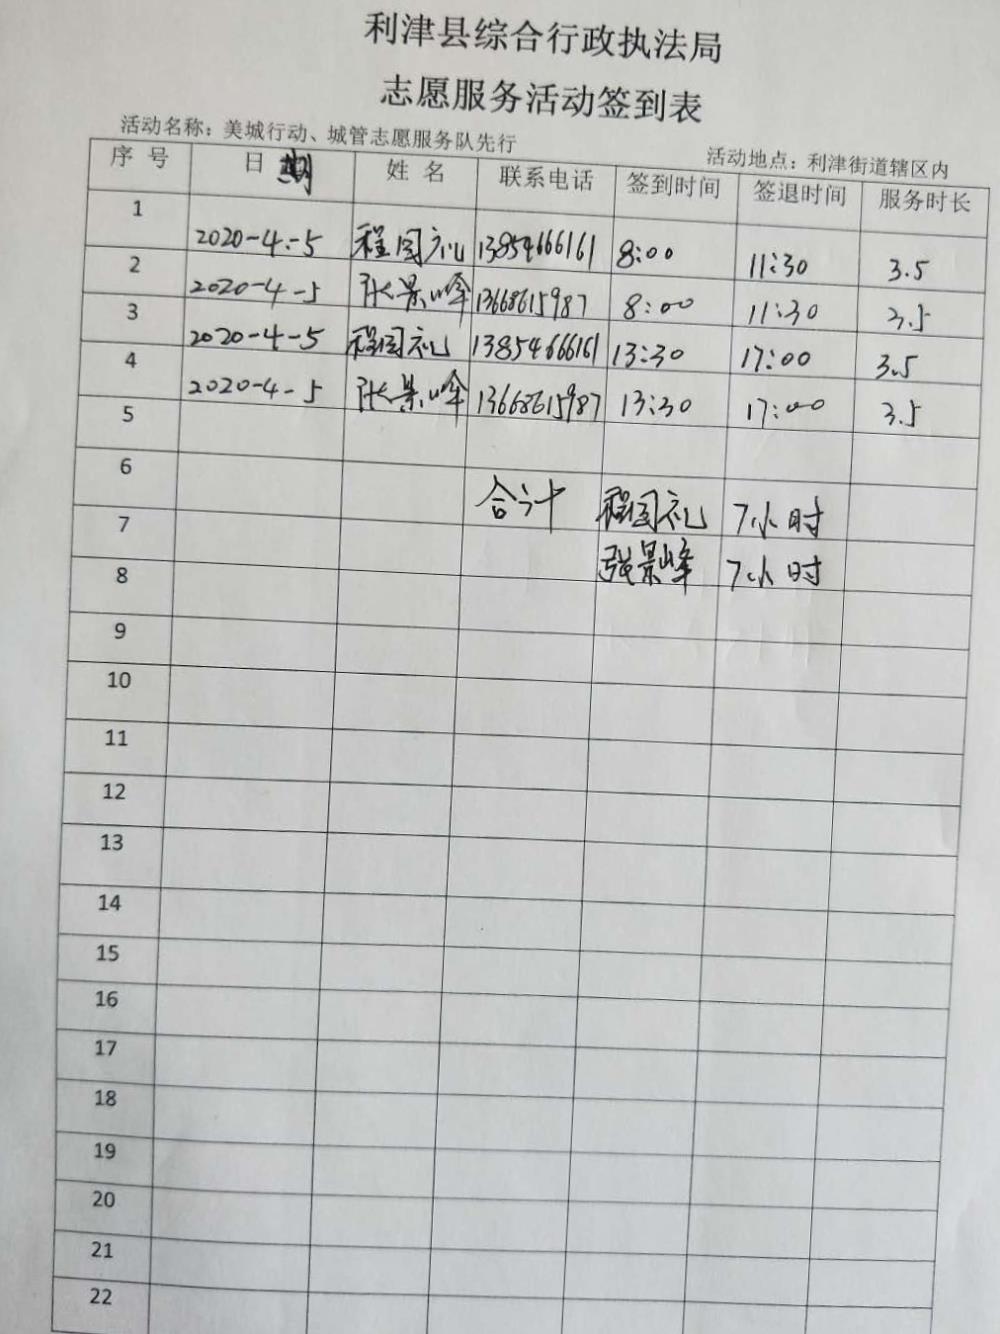 利津县综合行政执法局
志愿服务活动签到表
活动名称：美城行动、城管志愿服务队先行 活动地点：利津街道辖区内
序号 日期 姓名 联系电话 签到时间 签退时间 服务时长
1 2020-4-5 程国礼 13854666161 8:00 11:30 3.5
2 2020-4-5 张景峰 13668615987 8:00 11:30 3.5
3 2020-4-5 程国礼 13854666161 13:30 17:00 3.5
4 2020-4-5 张景峰 13668615987 13:30 17:00 3.5
5
6 合计 程国礼 7小时
7 张景峰 7小时
8
9
10
11
12
13
14
15
16
17
18
19
20
21
22